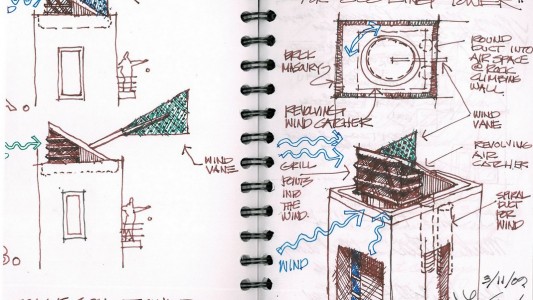 WIND
VANE
FOR COOLING TOWER"
BRICK
MASONRY
ROUND
DUCT INTO
AIR SPACE
@ ROCK
CLIMBING
WALL.
REVOLVING
WIND CATCHER
WIND
VANE
REVOLVING
AIR
CATCHER
GRILL
POINTS
INTO
THE
WIND.
SPIRAL
DUCT
FOR
WIND
WIND
3/11/02